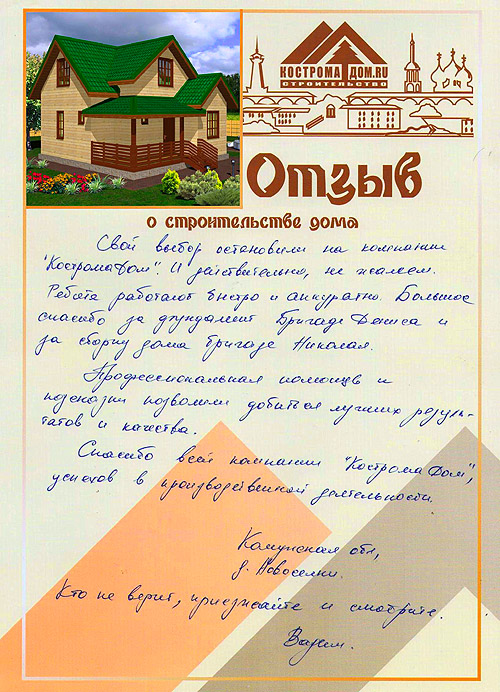 КОСТРОМА ДОМ.RU
СТРОИТЕЛЬСТВО
Отзыв
о строительстве дома
Свой выбор остановили на компании
"КостромаДом". И действительно, не жалеем.
Ребята работают быстро и аккуратно. Большое
спасибо за фундамент бригаде Дениса и
за сборку дома бригаде Николая.
Профессиональная помощь и
подсказки позволили добиться лучших резуль-
татов и качества.
Спасибо всей компании "КостромаДом",
успехов в производственной деятельности.
Калужская обл,
д. Новоселки.
Кто не верит, приезжайте и смотрите.
Вадим.